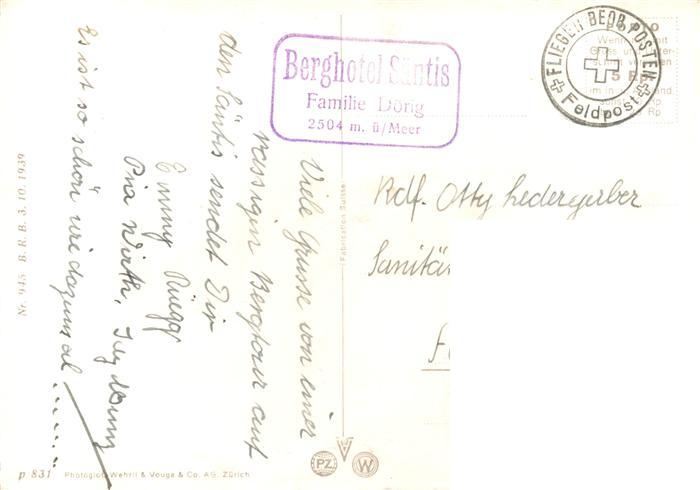 Berghotel Säntis
Familie Dörig
2504 m. ü/Meer
FLIEGER BEOB. POSTEN
Feldpost
Viele Grüsse von einer
rassigen Bergtour auf
den Säntis sendet Dir
Emmy Rüegg
Pia Wirth,
Es ist so schön wie dazumal
Rdf. Otty Ledergerber
Sanitä
Fabrication Suisse
Nr. 945 B. R. B. 3. 10. 1939
p 831 Photoglob Wehrli & Vouga & Co. AG. Zürich
PZ
W